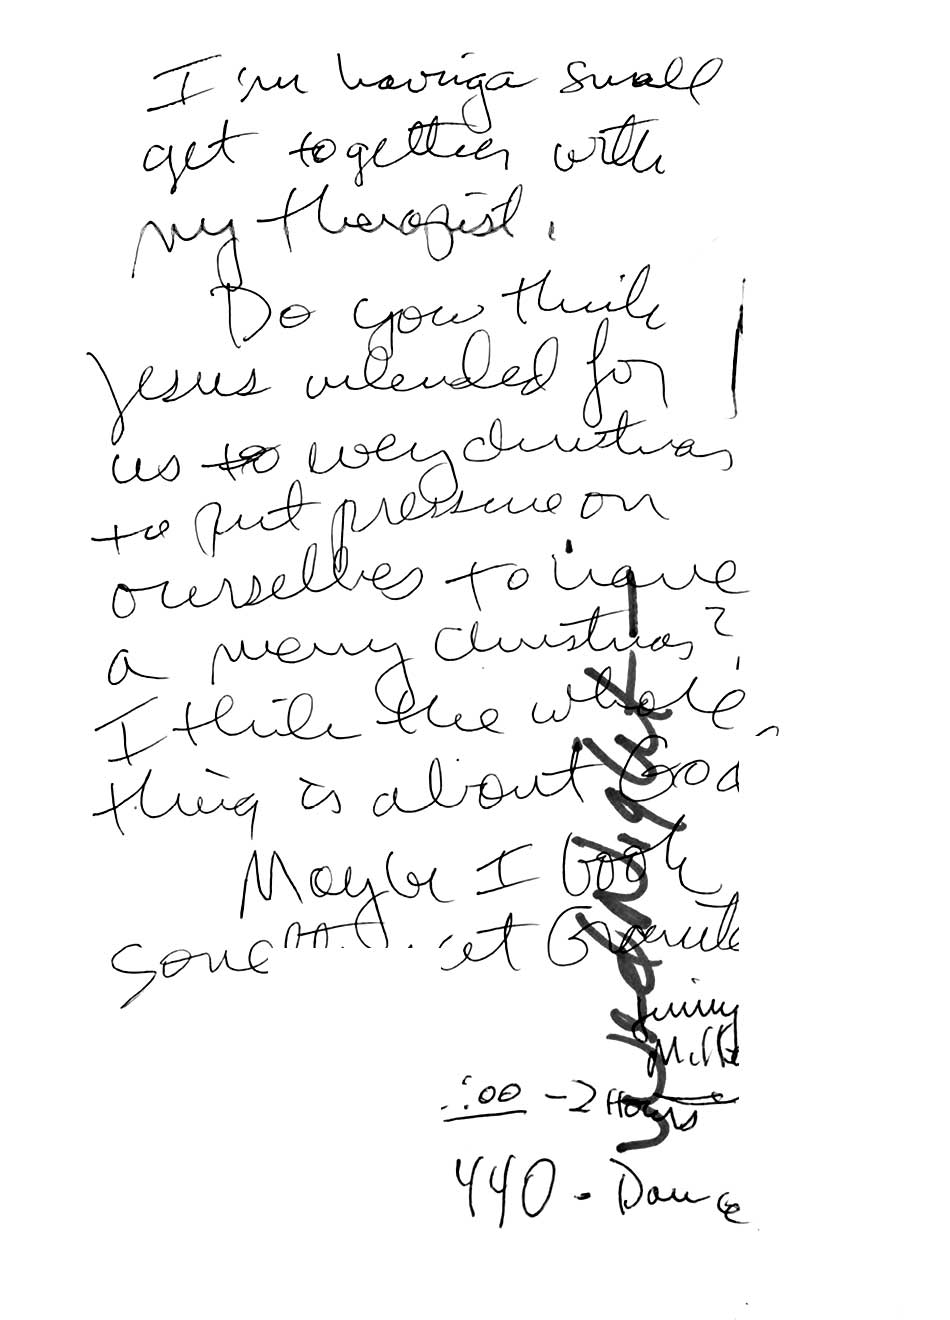 I'm having a small
get together with
my therapist.
Do you think
Jesus intended for
us to every christmas
to put pressure on
ourselves to have
a merry christmas?
I think the whole
thing is about God
Maybe I book
some at Granite
Jimmy
:00 - 2 Hours
440 - Dance